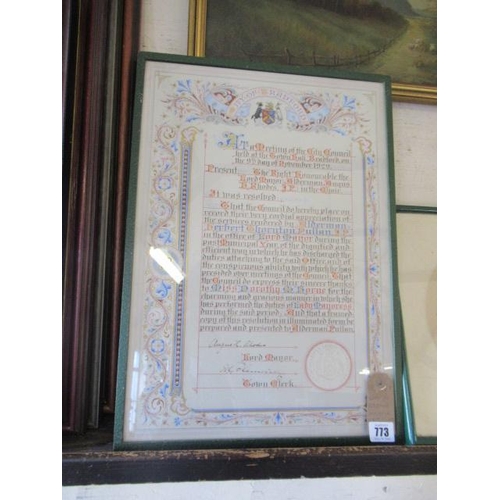 At a Meeting of the City Council
held at the Town Hall Bradford, on
the 9th day of November 1929.
Present The Right Honourable the
Lord Mayor, Alderman Angus
Rhodes, J.P. in the Chair
It was resolved
That the Council do hereby place on
record their very cordial appreciation of
the services rendered by Alderman
Herbert Thornton Pullan, J.P.
in the office of Lord Mayor during the
past Municipal Year, of the dignified and
efficient way in which he has discharged the
duties attaching to the said Office and of
the conspicuous ability with which he has
presided over meetings of the Council. That
the Council do express their sincere thanks
to Miss Dorothy for the
charming and gracious manner in which she
has performed the duties of Lady Mayoress
during the said period, And that a framed
copy of this resolution in illuminated form be
prepared and presented to Alderman Pullan.
Lord Mayor.
Town Clerk.
773